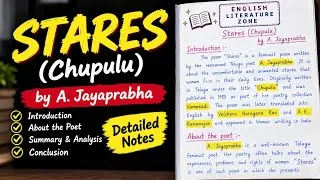 STARES
(Chupulu)
by A. Jayaprabha
Introduction
About the Poet
Summary & Analysis
Conclusion
Detailed
Notes
ENGLISH
LITERATURE
ZONE
Stares (Chupulu)
by A. Jayaprabha
Introduction :-
The poem "Stares" is a feminist poem written
by the renowned Telugu poet A. Jayaprabha. It is
about the uncomfortable and unwanted stares that
women face in their daily lives. Originally written
in Telugu under the title "Chupulu" and was
published in 1988 as part of her poetry collection
Vamanudi. The poem was later translated into
English by Velcheru Narayana Rao and A. K.
Ramanujan and appeared in Women writing in India
About the poet :-
A. Jayaprabha is a well-known Telugu
feminist poet. Her poetry often talks about the
experiences, problems and rights of women. "Stares"
is one of such poem in which she presents